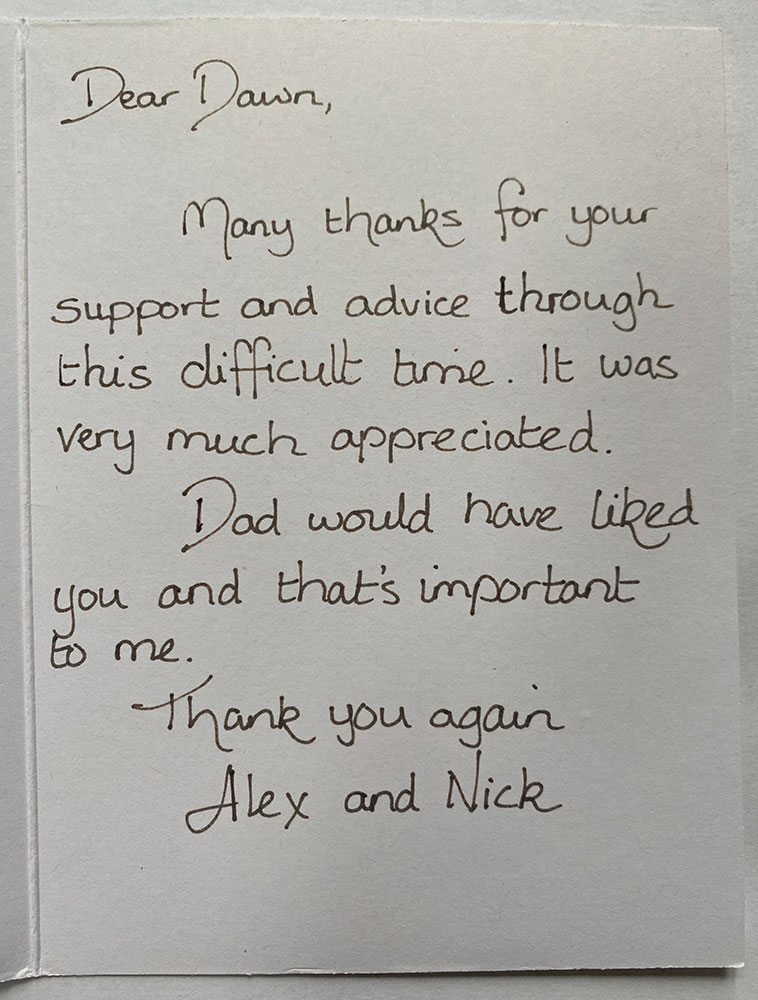 Dear Dawn,
Many thanks for your
support and advice through
this difficult time. It was
very much appreciated.
Dad would have liked
you and that's important
to me.
Thank you again
Alex and Nick